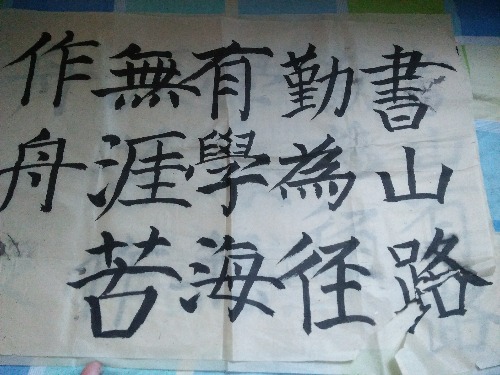 書山路
勤為径
有學海
無涯苦
作舟